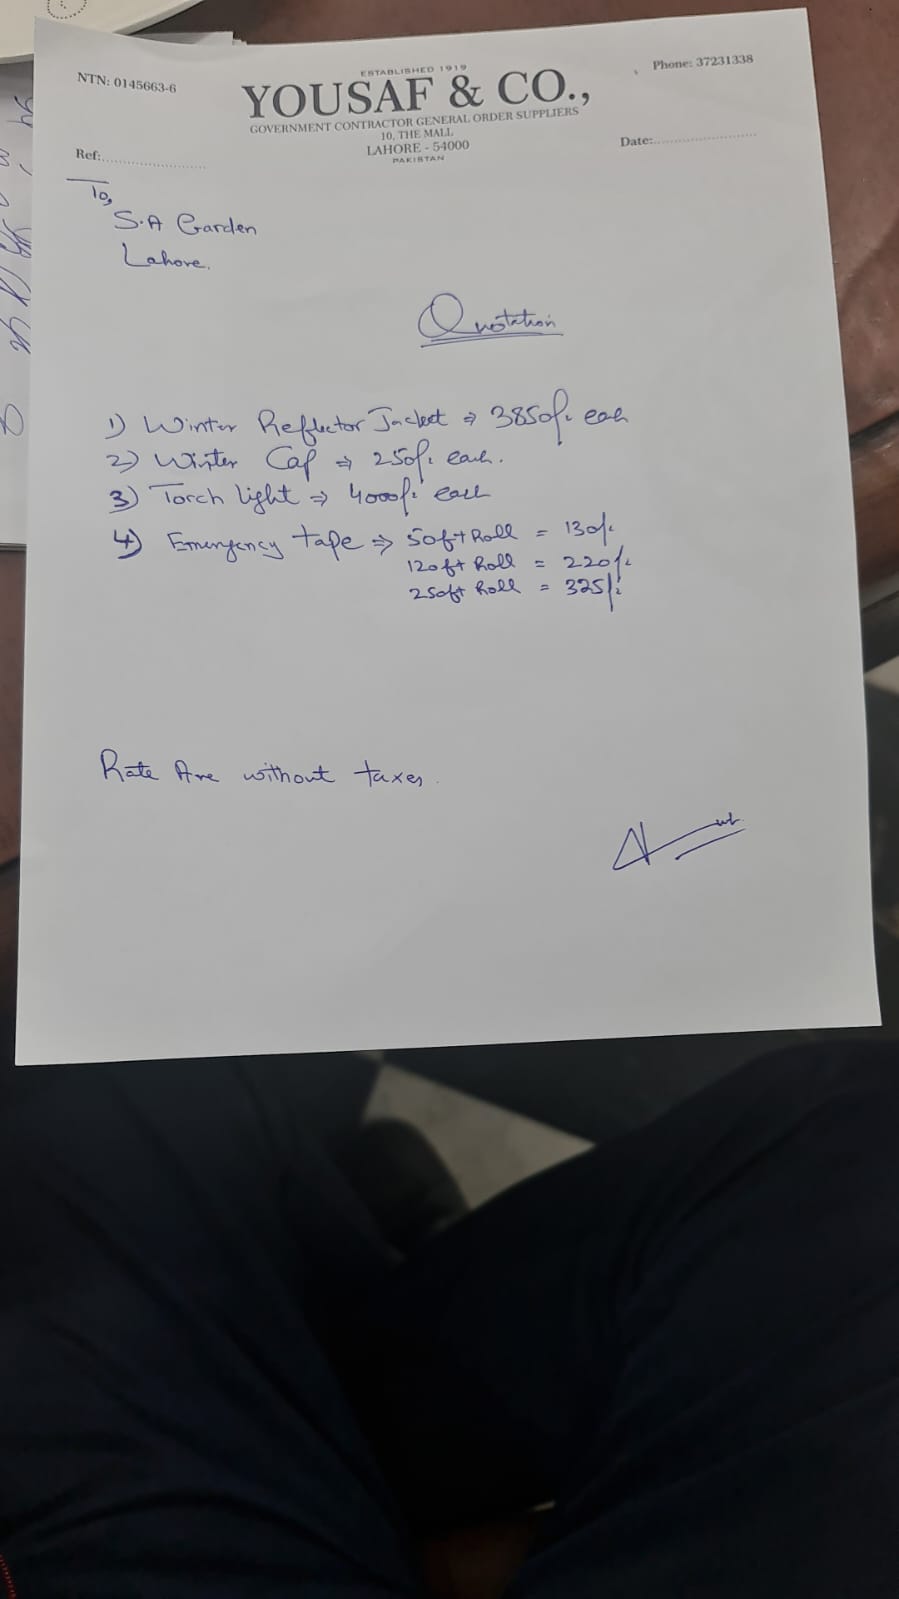 ESTABLISHED 1919
NTN: 0145663-6
Phone: 37231338
YOUSAF & CO.,
GOVERNMENT CONTRACTOR GENERAL ORDER SUPPLIERS
10, THE MALL
LAHORE - 54000
PAKISTAN
Ref:........................
Date:........................
To,
S.A Garden
Lahore.
Quotation
1) Winter Reflector Jacket ⇒ 3850/- each
2) Winter Cap ⇒ 250/- each.
3) Torch light ⇒ 4000/- each
4) Emergency tape ⇒ 50ft Roll = 130/-
120ft Roll = 220/-
250ft Roll = 325/-
Rate Are without taxes.